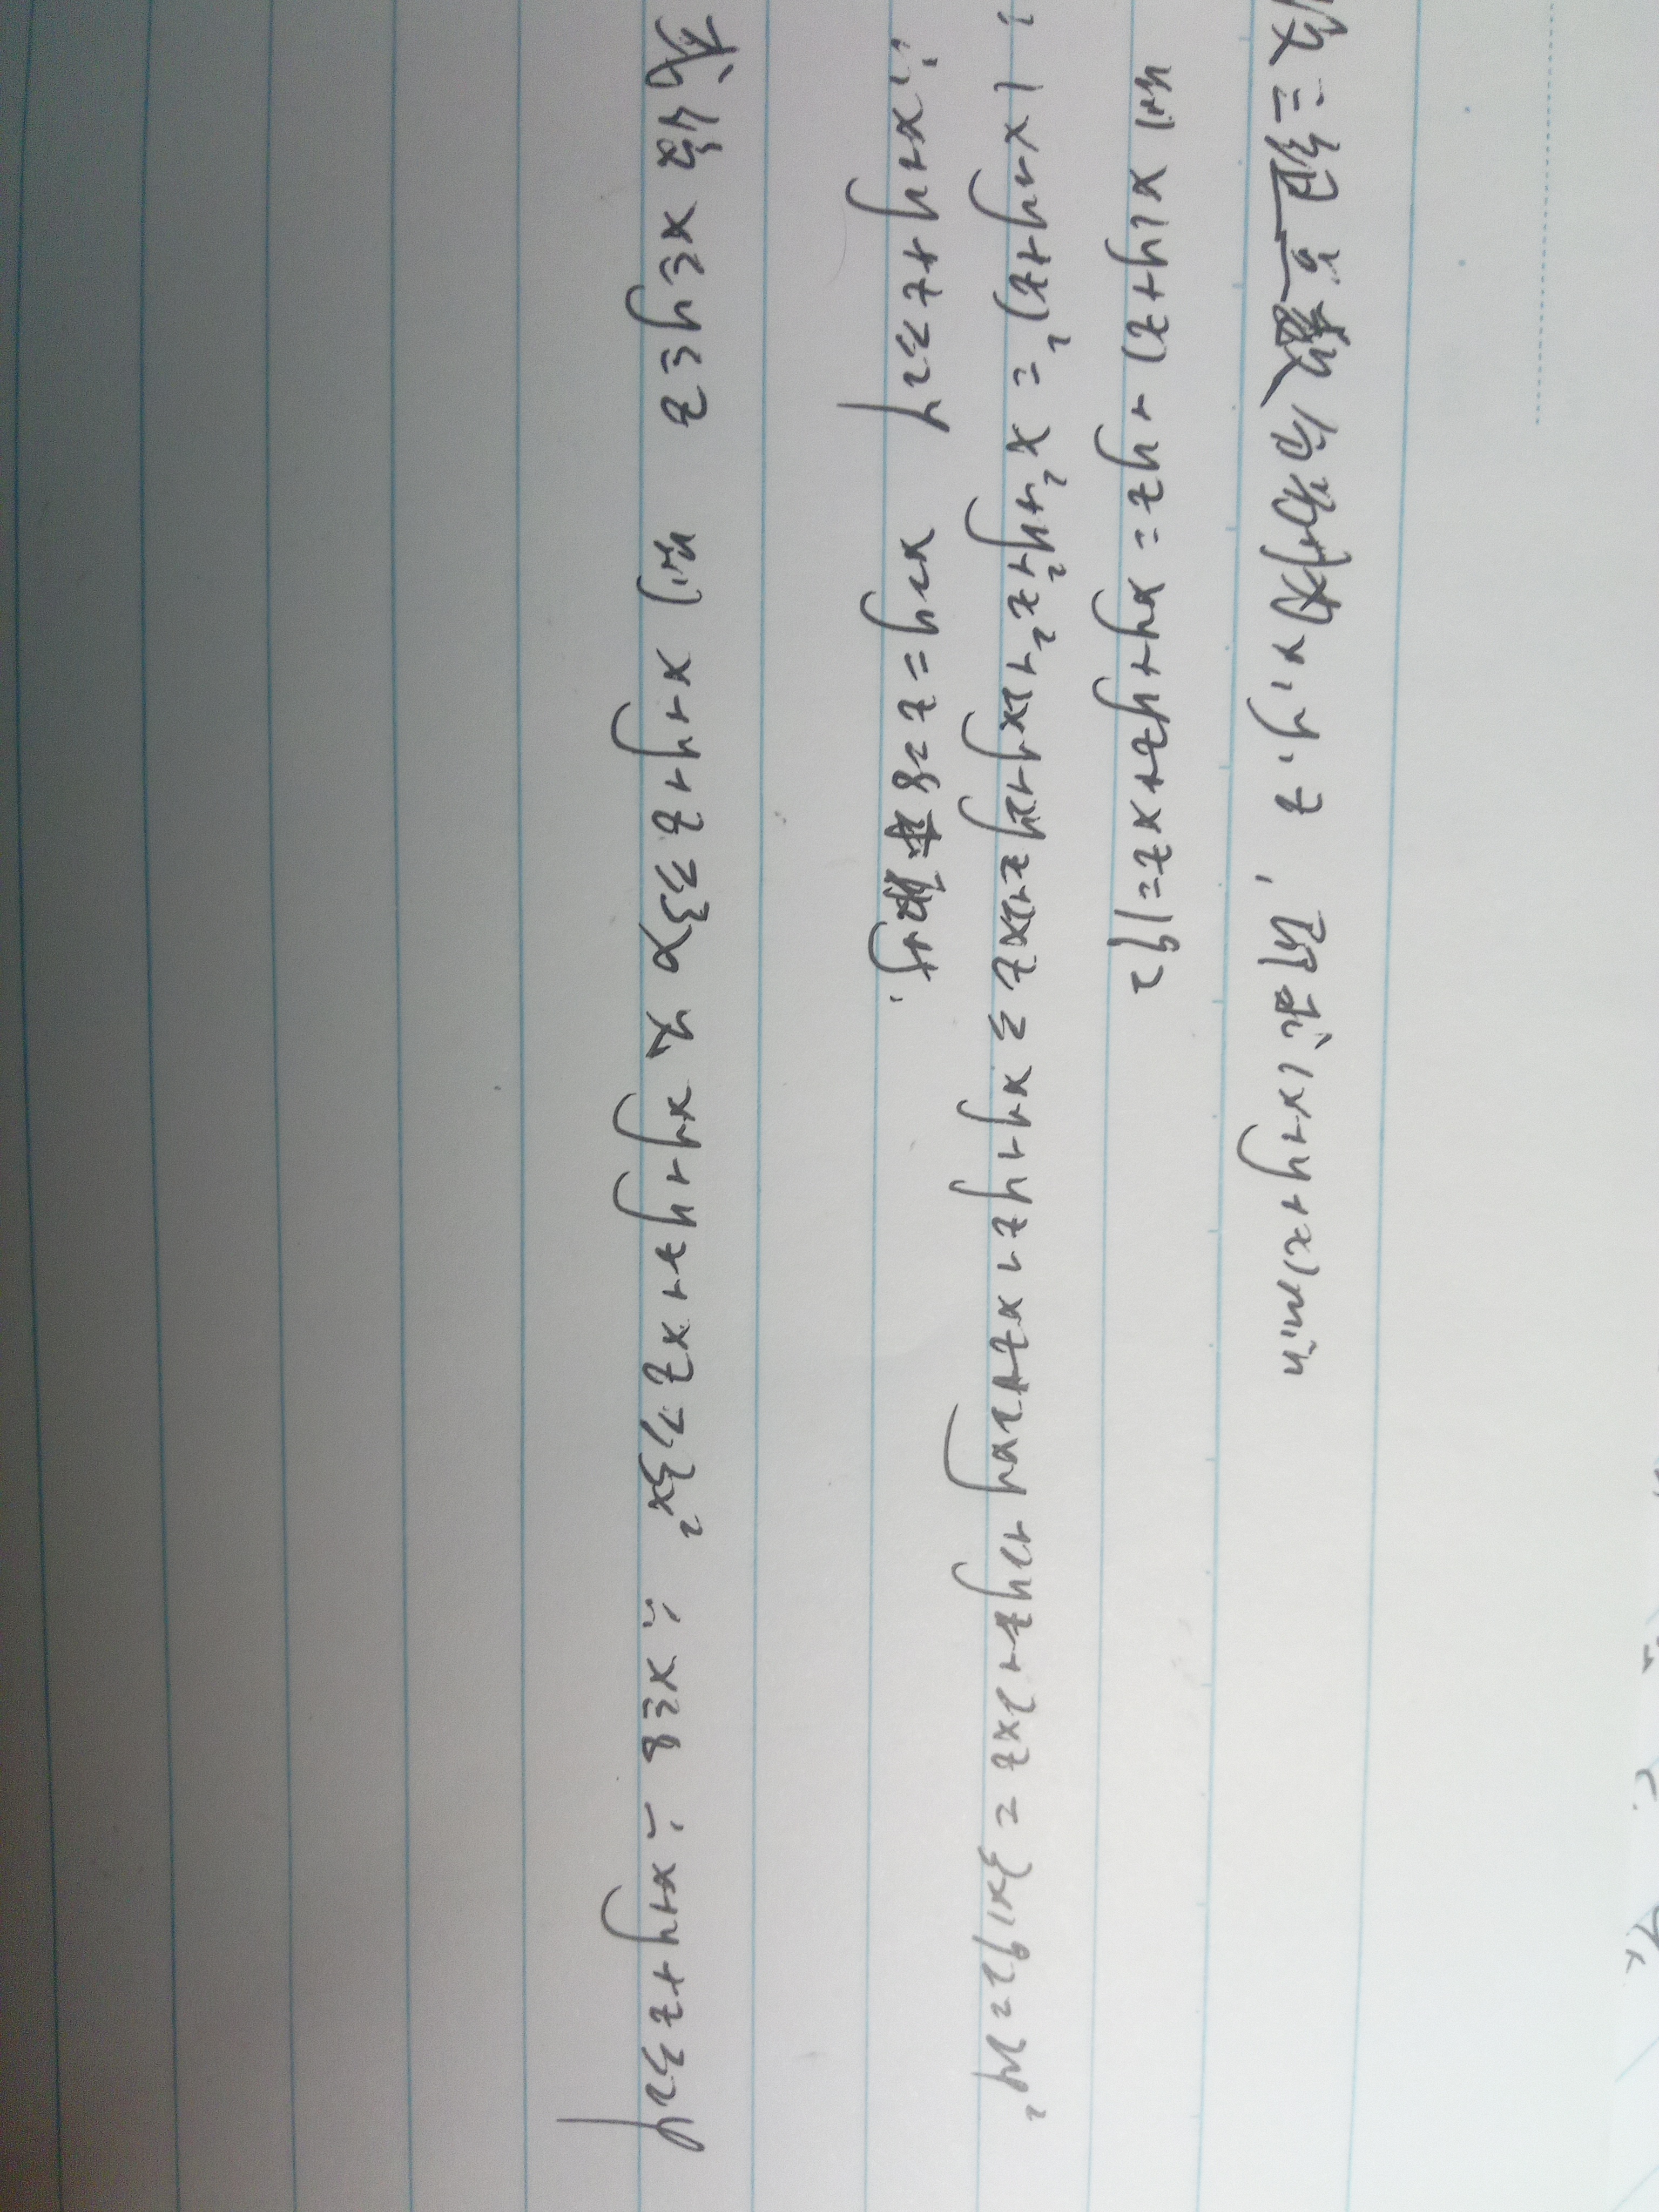 设三组点数分别为x,y,z,即求(x+y+z)min
则 x(y+z)+yz=xy+yz+xz=192
∴(x+y+z)²=x²+y²+z²+2xy+2yz+2xz≥xy+yz+xz+2xy+2yz+2xz=3×192=24²
∴x+y+z≥24 x=y=z=8时取
或设x≤y≤z 则 x+y+z≥3x 又 xy+yz+xz≥3x² ∴x≤8 ∴x+y+z≥24